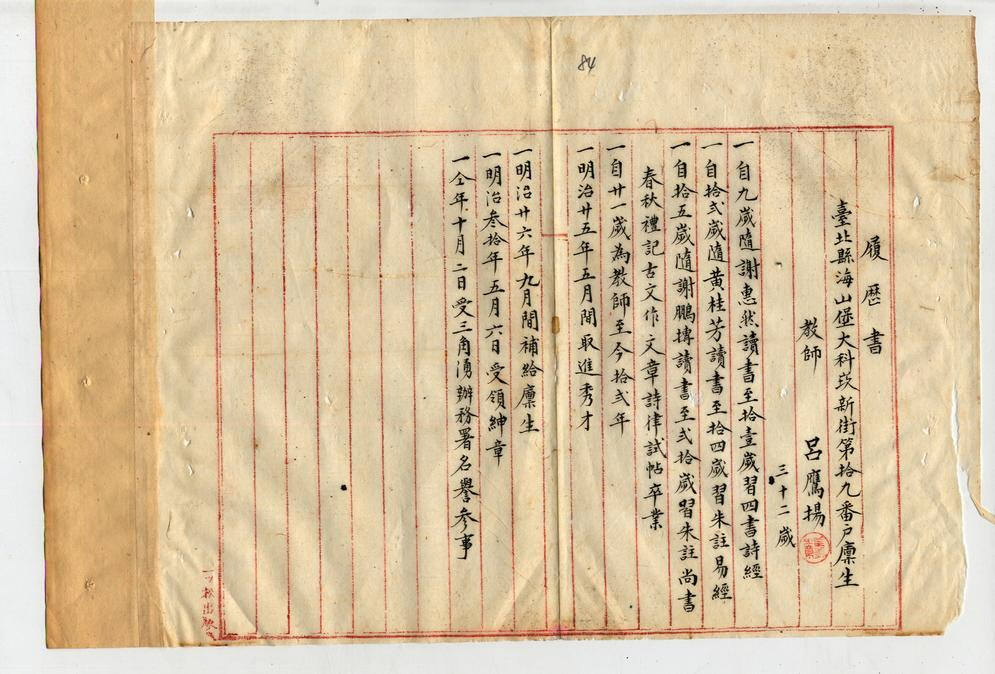 84
履歷書
臺北縣海山堡大科崁新街第拾九番戶廩生
教師 呂鷹揚
三十二歲
一自九歲隨謝惠然讀書至拾壹歲習四書詩經
一自拾弍歲隨黃桂芳讀書至拾四歲習朱註易經
一自拾五歲隨謝鵬摶讀書至弍拾歲習朱註尚書
春秋禮記古文作文章詩律試帖卒業
一自廿一歲為教師至今拾弍年
一明治廿五年五月間取進秀才
一明治廿六年九月間補給廩生
一明治叁拾年五月六日受領紳章
一仝年十月二日受三角湧辦務署名譽參事